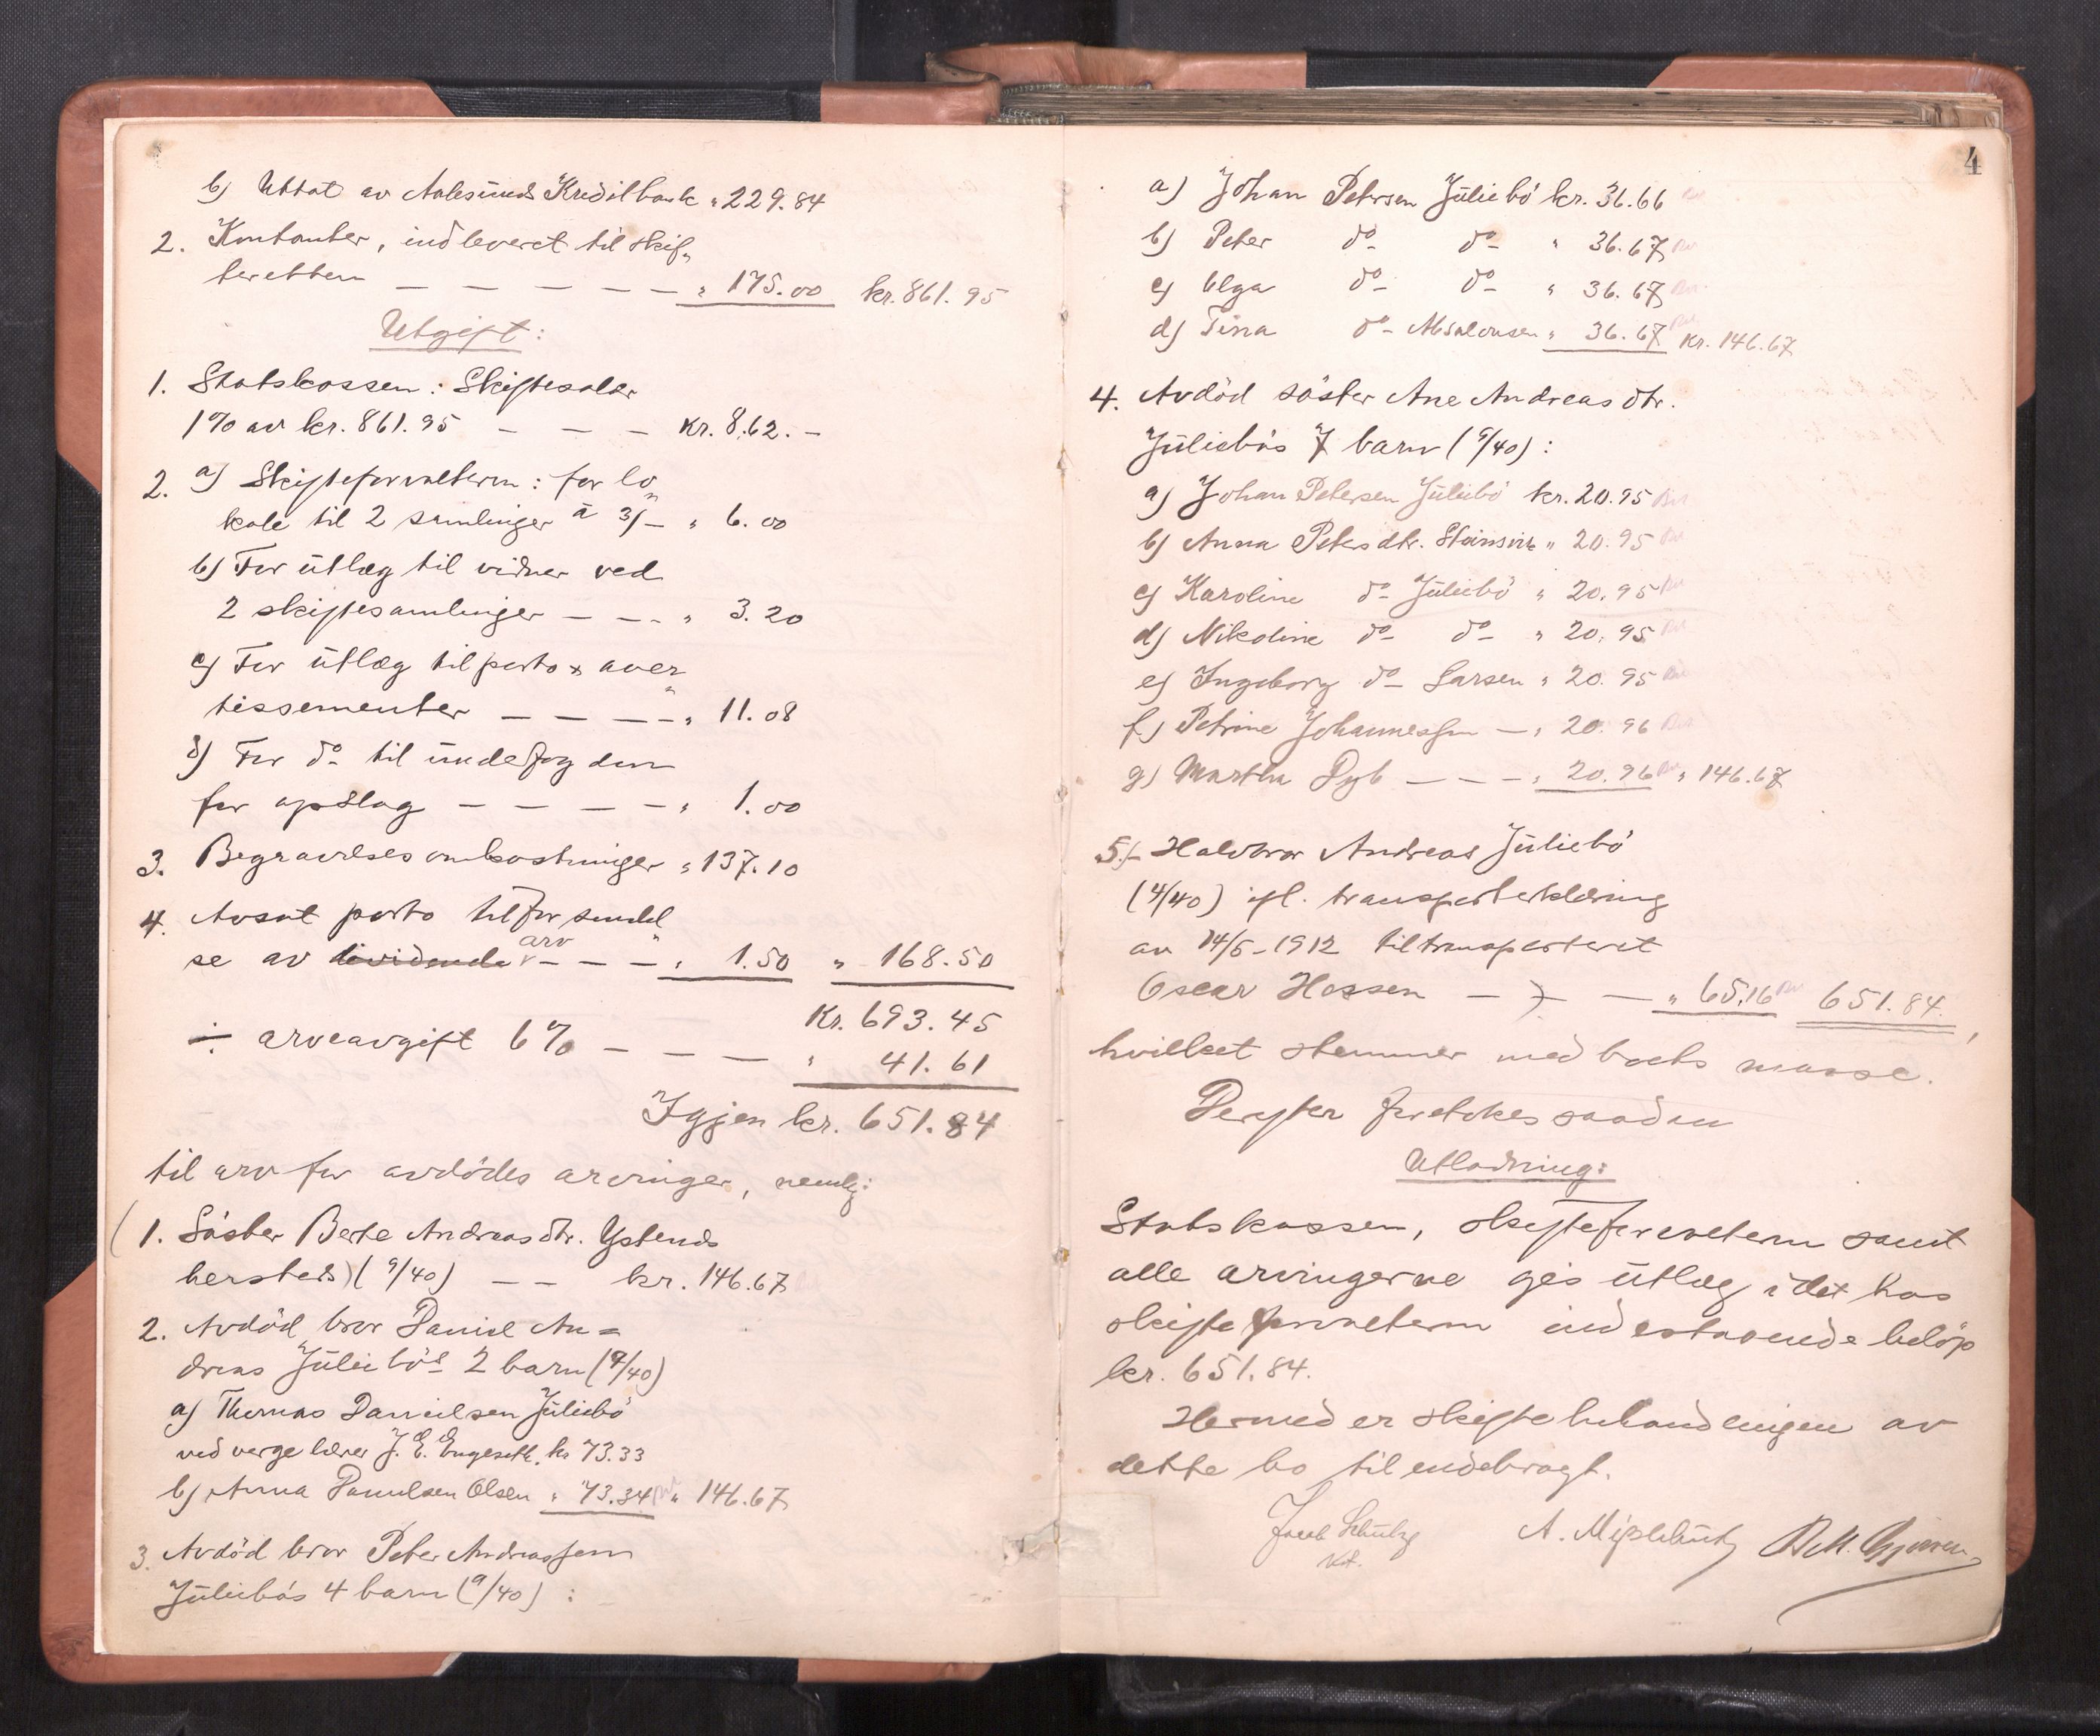 b) Uttat av Aalesunds Kreditbank " 229.84
2. Kontanter, indleveret til skif„
teretten — — — — — " 175.00 kr. 861.95
Utgift:
1. Statskassen: Skiftesalær
1% av kr. 861.95 — — — kr. 8.62. —
2. a) Skifteforvalteren: for lo„
kale til 2 samlinger à 3/— " 6.00
b) For utlæg til vidner ved
2 skiftesamlinger — — — " 3.20
c) For utlæg til porto & aver„
tissementer — — — — " 11.08
d) For do til
for opslag — — — — — " 1.00
3. Begravelsesomkostninger " 137.10
4. Avsat porto til forsendel„
se av dividende arv — — — " 1.50 " 168.50
Kr. 693.45
÷ arveavgift 6% — — — " 41.61
Igjen kr. 651.84
til arv for avdödes arvinger, nemlig:
(1. Söster Berte Andreasdtr. Ystenes
hersteds) (9/40) — — kr. 146.67
2. Avdöd bror Daniel An=
dreas Juliebö's 2 barn (9/40)
a) Thomas Danielsen Juliebö
ved verge lærer J. E. Engeseth. kr 73.33
b) Anna Danielsen Olsen " 73.34 " 146.67
3. Avdöd bror Peter Andreassen
Juliebös 4 barn (9/40) :
4
a) Johan Petersen Juliebö kr. 36.66
b) Peter do do " 36.67
c) Olga do do " 36.67
d) Tina do Absalonsen " 36.67 kr. 146.67
4. Avdöd söster Ane Andreasdtr.
Juliebös 7 barn (9/40) :
a) Johan Petersen Juliebö kr. 20.95
b) Anna Petersdtr. " 20.95
c) Karoline do Juliebö " 20.95
d) Nikoline do do " 20.95
e) Ingeborg do Larsen " 20.95
f) Petrine Johannessen — " 20.96
g) Martha Dyb — — — " 20.96 " 146.67
5. Halvbror Andreas Juliebö
(4/40) ifl. transporterklæring
av 14/5-1912 tiltransporteret
Oscar Hessen — — — " 65.16 651.84,
hvilket stemmer med boets masse.
Derefter foretokes saadan
Utlodning:
Statskassen, skifteforvalteren samt
alle arvingerne gis utlæg i det hos
skifteforvalteren indestaaende belöp
kr. 651.84.
Hermed er skiftebehandlingen av
dette bo tilendebragt.
Jacob Schultz